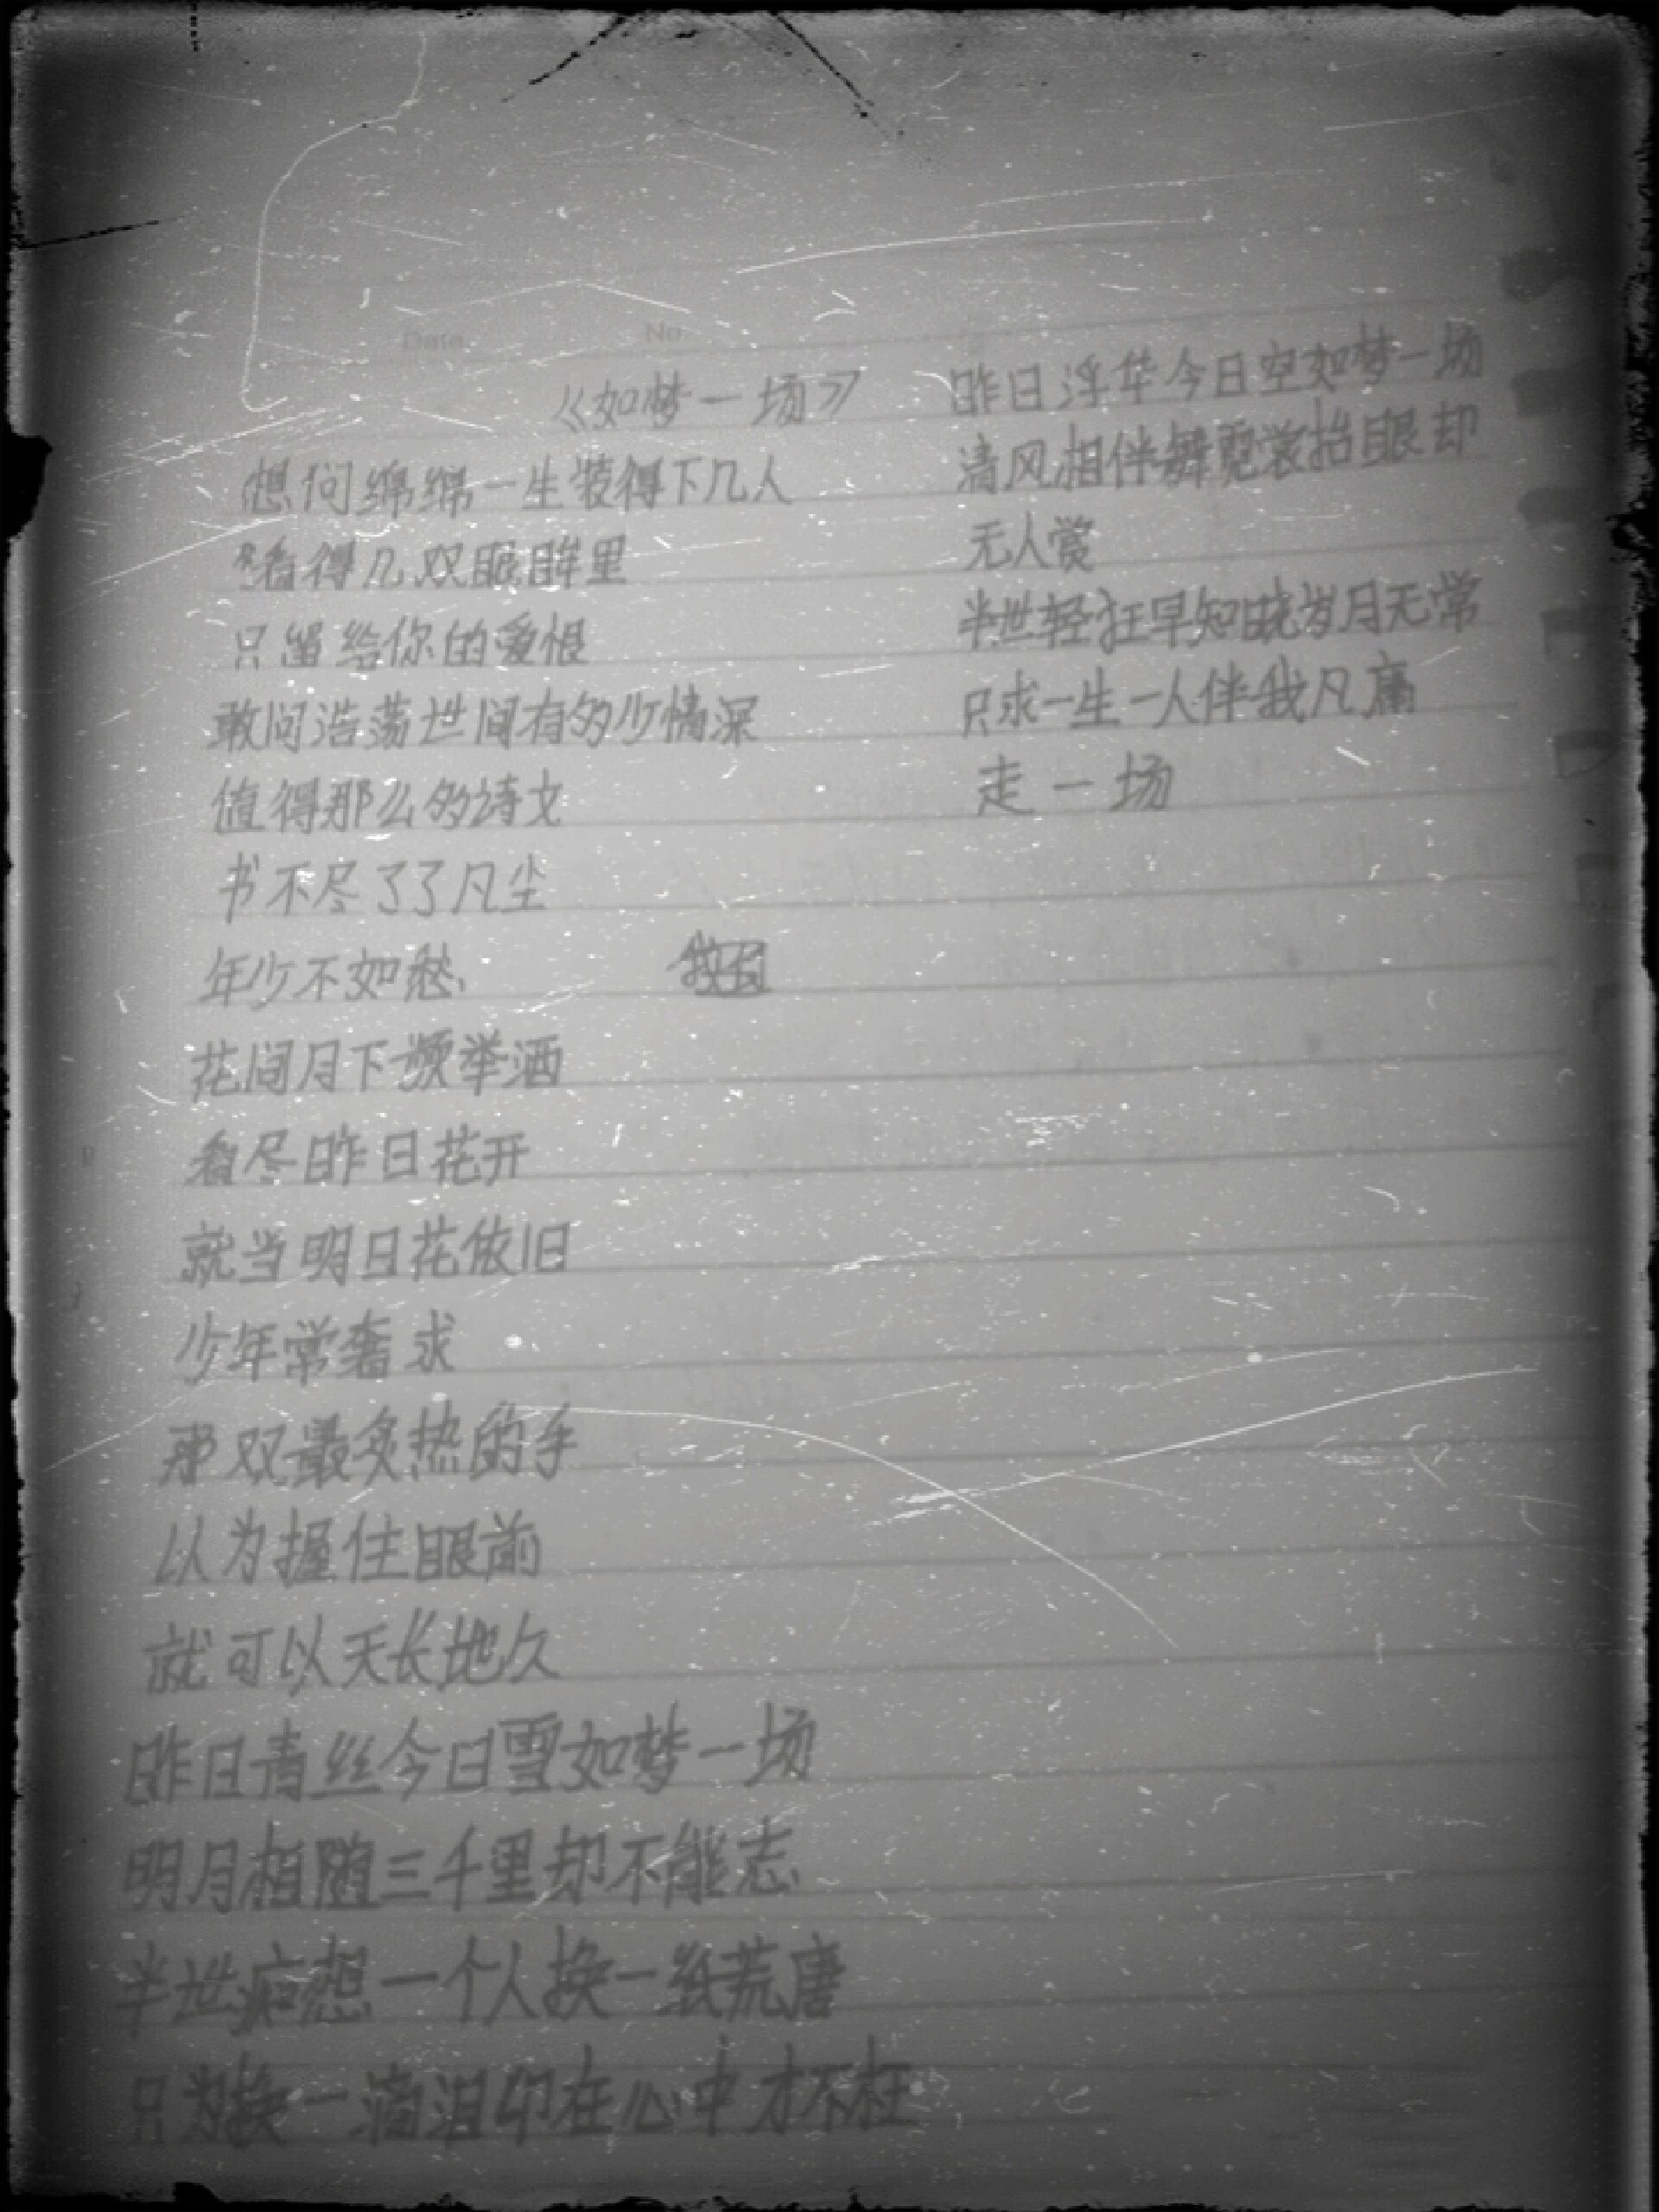 Date No
《如梦一场》
想问绵绵一生装得下几人
看得几双眼眸里
只留给你的爱恨
敢问浩荡世间有多少情深
值得那么多诗文
书不尽了了凡尘
年少不如愁
花间月下频举酒
看尽昨日花开
就当明日花依旧
少年常奢求
那双最炙热的手
以为握住眼前
就可以天长地久
昨日青丝今日雪如梦一场
明月相随三千里却不能忘
半世痴想一个人换一纸荒唐
只为换一滴泪印在心中才不枉
昨日浮华今日空如梦一场
清风相伴舞霓裳抬眼却
无人赏
半世轻狂早知晓岁月无常
只求一生一人伴我凡
走一场